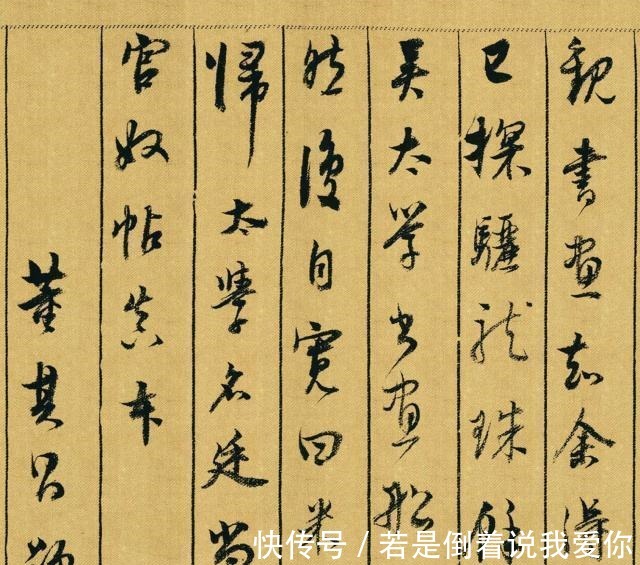 觀書畫知余
已探驪龍珠
吳太學書畫船
然後自寬曰米
歸太學名廷尚
官奴帖真本
董其昌題
快传号/若是倒着说我爱你